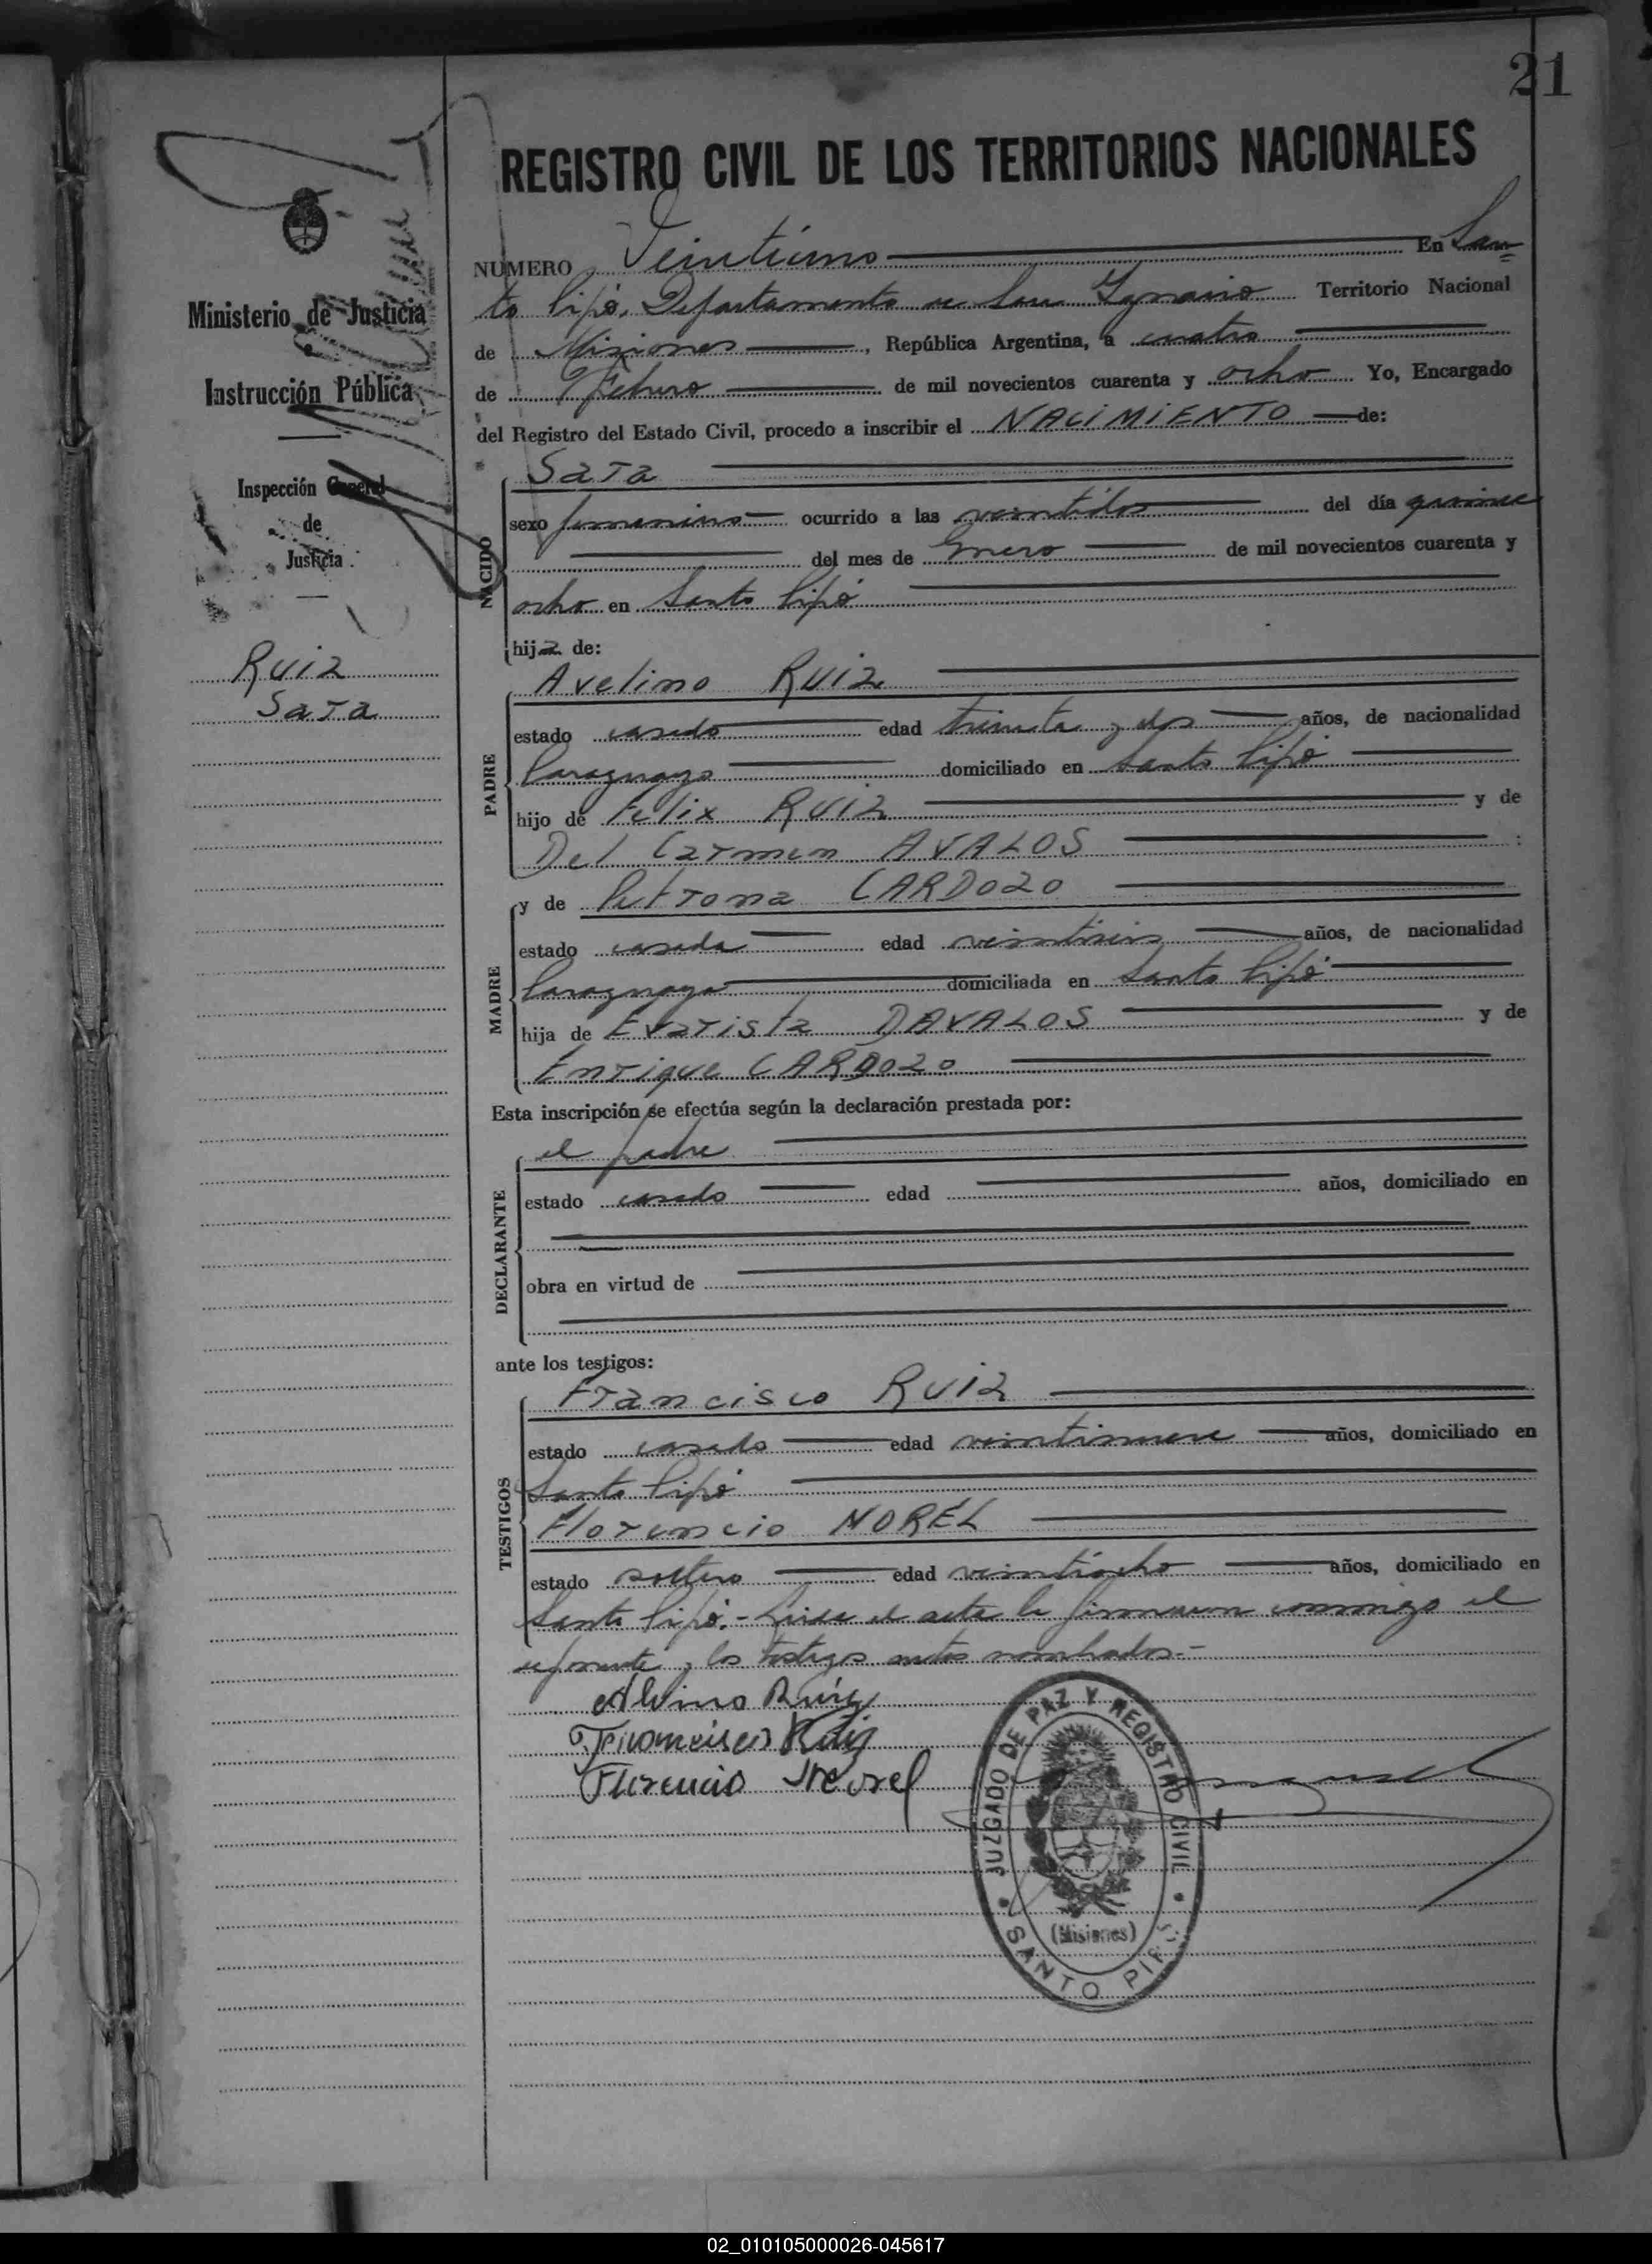 21
REGISTRO CIVIL DE LOS TERRITORIOS NACIONALES
NUMERO Veintiuno En San
to Pipó, Departamento de San Ygnacio Territorio Nacional
de Misiones, República Argentina, a cuatro
de Febrero de mil novecientos cuarenta y ocho Yo, Encargado
del Registro del Estado Civil, procedo a inscribir el NACIMIENTO de:
Ministerio de Justicia
Instrucción Pública
Inspección General
de
Justicia
Ruiz
Sara
NACIDO
Sara
sexo femenino ocurrido a las veintidos del día quince
del mes de Enero de mil novecientos cuarenta y
ocho en Santo Pipó
hija de:
PADRE
Avelino Ruiz
estado casado edad treinta y dos años, de nacionalidad
Paraguayo domiciliado en Santo Pipó
hijo de Felix Ruiz y de
Del Carmen AVALOS :
MADRE
y de Petrona CARDOZO
estado casada edad veintiseis años, de nacionalidad
Paraguaya domiciliada en Santo Pipó
hija de Evarista DAVALOS y de
Enrique CARDOZO
Esta inscripción se efectúa según la declaración prestada por:
DECLARANTE
el padre
estado casado edad años, domiciliado en
obra en virtud de
ante los testigos:
TESTIGOS
Francisco Ruiz
estado casado edad veintinueve años, domiciliado en
Santo Pipó
Florencio MOREL
estado soltero edad veintiocho años, domiciliado en
Santo Pipó.- Leida el acta la firmaron conmigo el
exponente y los testigos antes nombrados.-
Alvino Ruiz
Francisco Ruiz
Florencio Morel
JUZGADO DE PAZ Y REGISTRO CIVIL
(Misiones)
SANTO PIPÓ
02_010105000026-045617